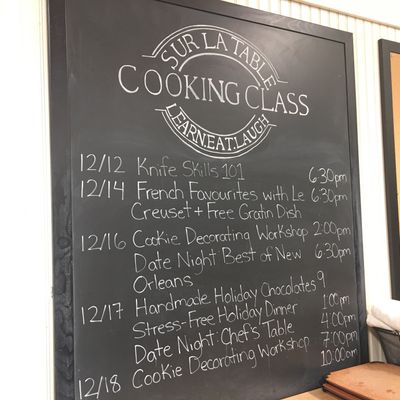 SUR LA TABLE
COOKING CLASS
LEARN.EAT.LAUGH
12/12 Knife Skills 101 6:30pm
12/14 French Favourites with Le 6:30pm
Creuset + Free Gratin Dish
12/16 Cookie Decorating Workshop 2:00pm
Date Night Best of New 6:30pm
Orleans
12/17 Handmade Holiday Chocolates 9
Stress-Free Holiday Dinner 1:00pm
Date Night: Chef's Table 4:00pm
12/18 Cookie Decorating Workshop 7:00pm
10:00am